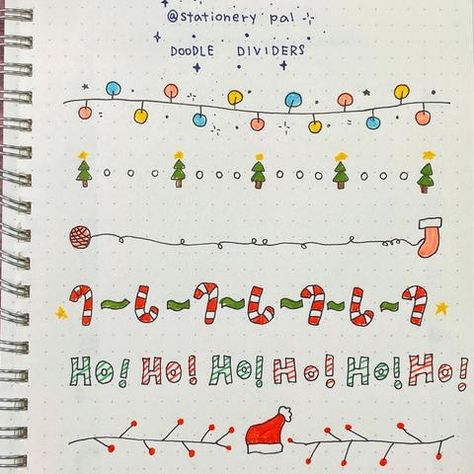 @stationery pal
DOODLE DIVIDERS
Ho! Ho! Ho! Ho! Ho! Ho!